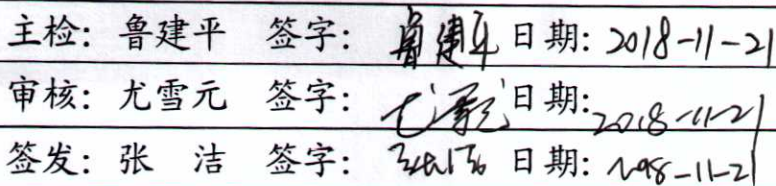 主检: 鲁建平 签字: 鲁建平 日期: 2018-11-21
审核: 尤雪元 签字: 尤雪元 日期: 2018-11-21
签发: 张 洁 签字: 张洁 日期: 2018-11-21